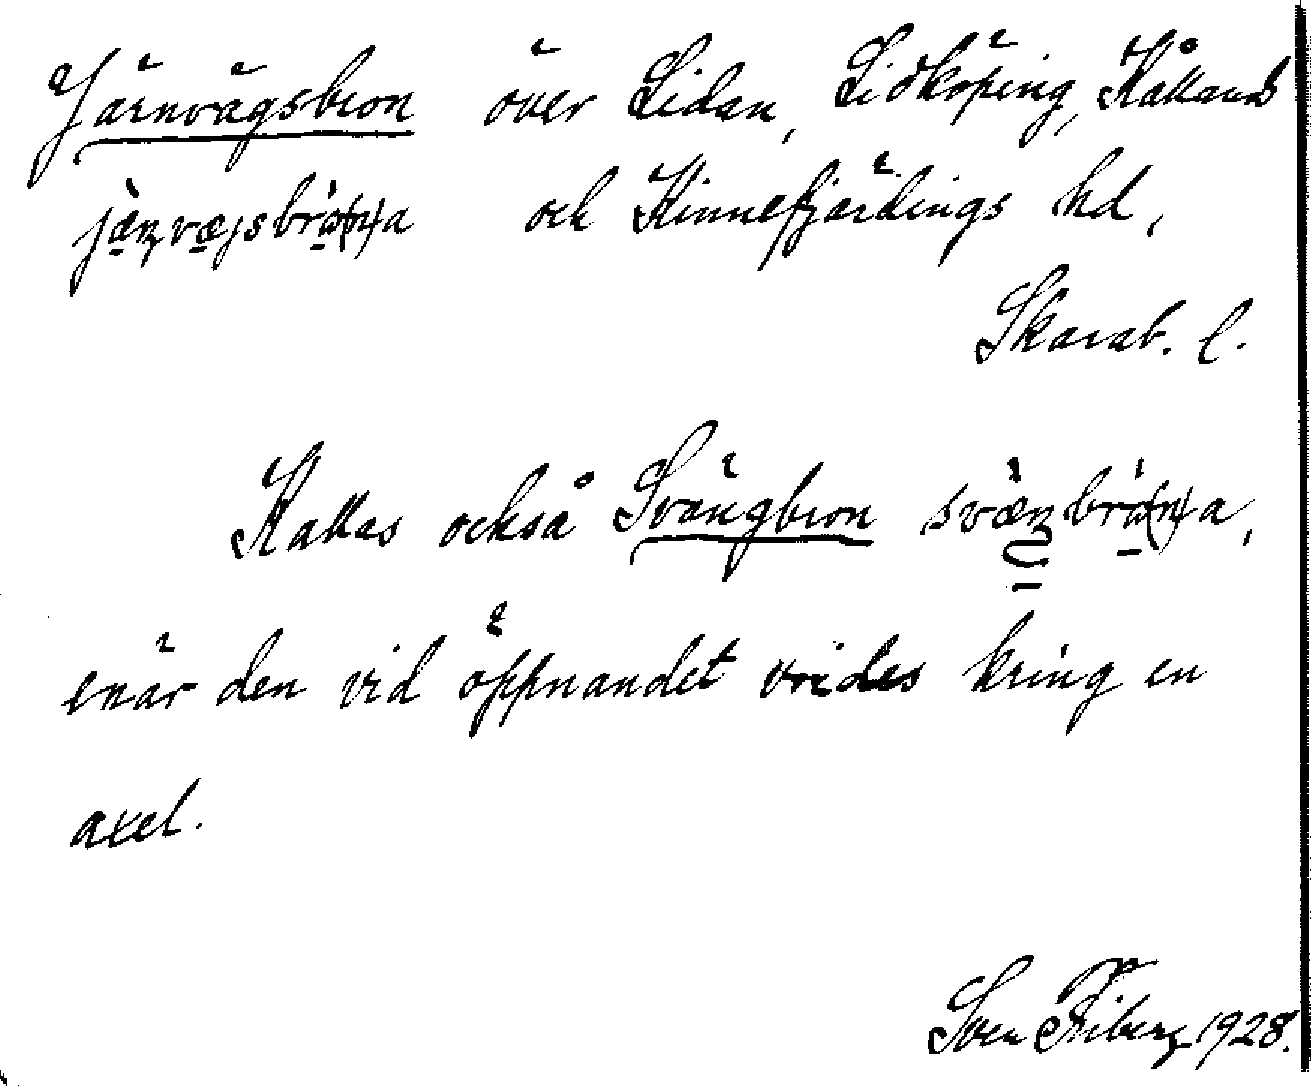 Järnvägsbron över Lidan, Lidköping, Kållands
och Kinnefjärdings hd,
Skarab. l.
Kallas också Svängbron
enär den vid öppnandet vrides kring en
axel.
Sven Friberg 1928.